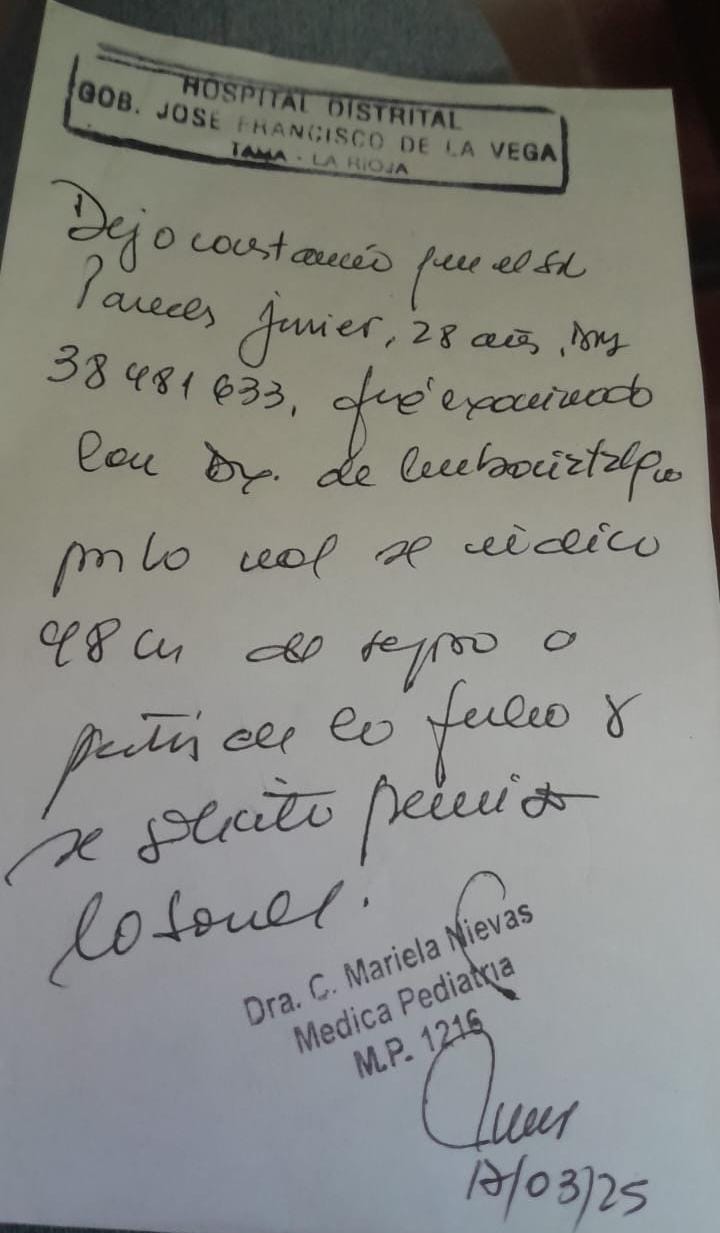 HOSPITAL DISTRITAL
GOB. JOSE FRANCISCO DE LA VEGA
TAMA - LA RIOJA
Dejo constancia que el Sr
Paredes Junier, 28 años, DNI
38481633, fué examinado
con Dx. de lumbociatalgia
por lo cual se indica
48 hs de reposo a
partir de la fecha y
se solicita permiso
laboral.
Dra. C. Mariela Nievas
Medica Pediatria
M.P. 1216
17/03/25